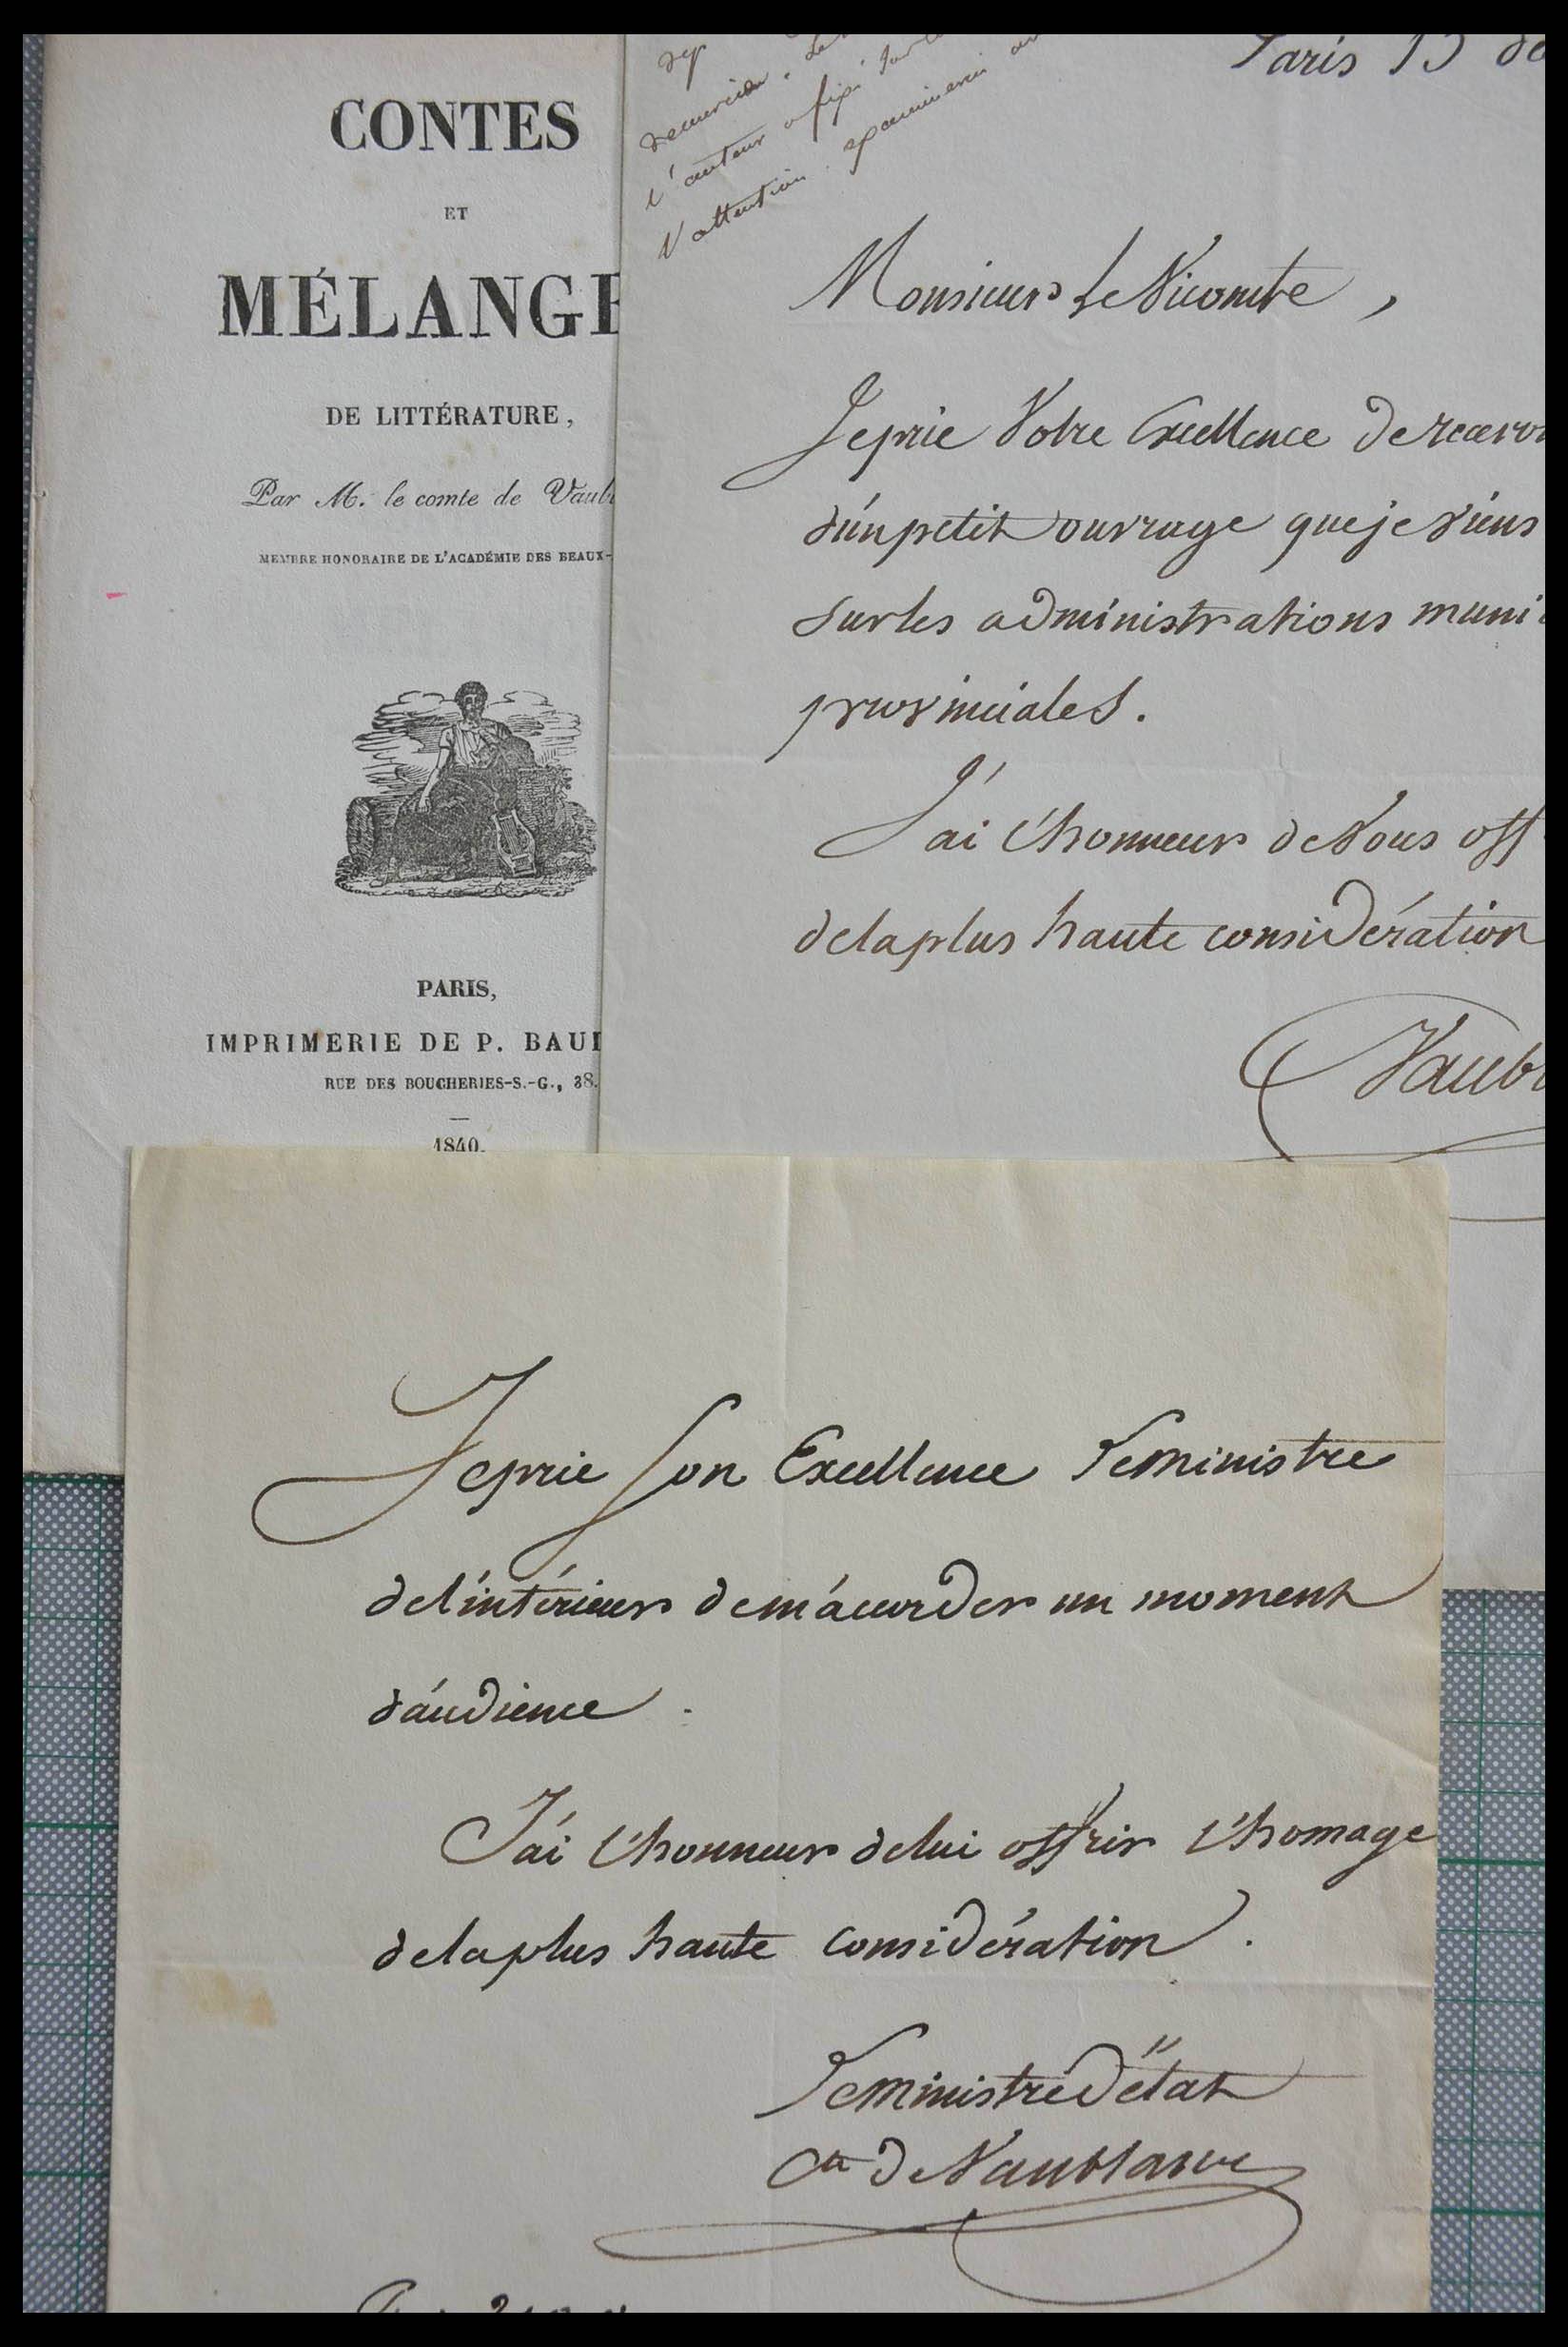 CONTES
ET
MÉLANGE
DE LITTÉRATURE,
Par M. le comte de Vaub
MEMBRE HONORAIRE DE L'ACADÉMIE DES BEAUX-
PARIS,
IMPRIMERIE DE P. BAU
RUE DES BOUCHERIES-S.-G., 38.
1840.
Paris 15
remercier
l'auteur a fixé
l'attention
Monsieur Le Vicomte,
Je prie Votre Excellence de recevoi
d'un petit ouvrage que je viens
sur les administrations muni
provinciales.
J'ai l'honneur de Vous off
de la plus haute considération
Vaubl
Je prie Son Excellence Le ministre
de l'intérieur de m'accorder un moment
d'audience.
J'ai l'honneur de lui offrir l'homage
de la plus haute considération.
Le ministre d'état
Cte de Vaublanc